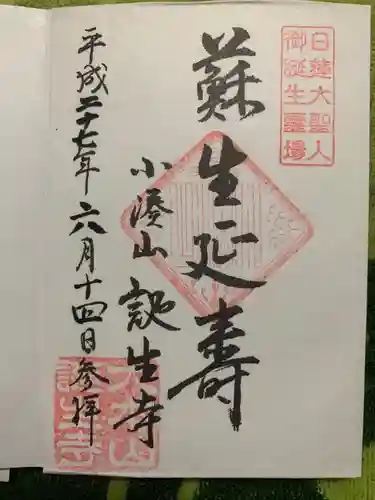 日蓮大聖人
御誕生霊場
蘇生延壽
小湊山 誕生寺
平成二十七年 六月十四日 参拝